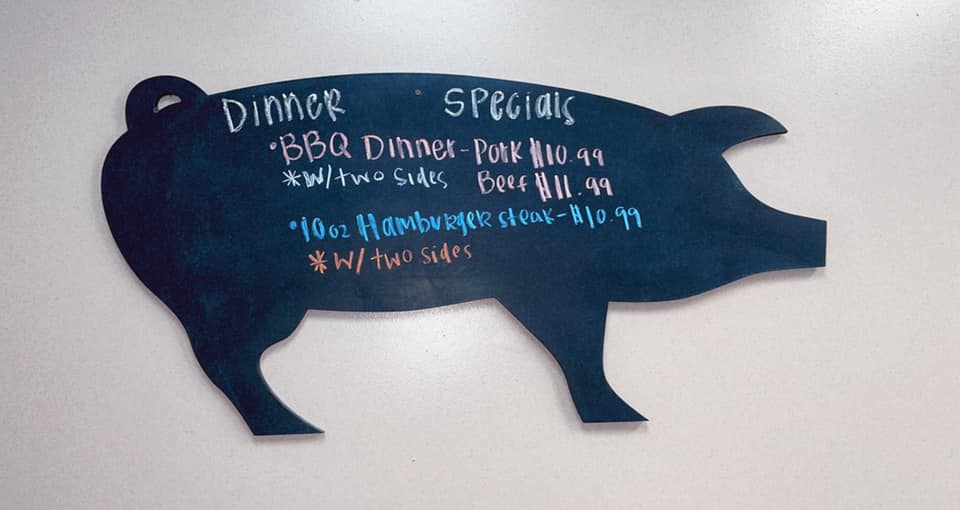 Dinner Specials
•BBQ Dinner-Pork $10.99
*w/two sides Beef $11.99
•10oz Hamburger steak-$10.99
*w/two sides